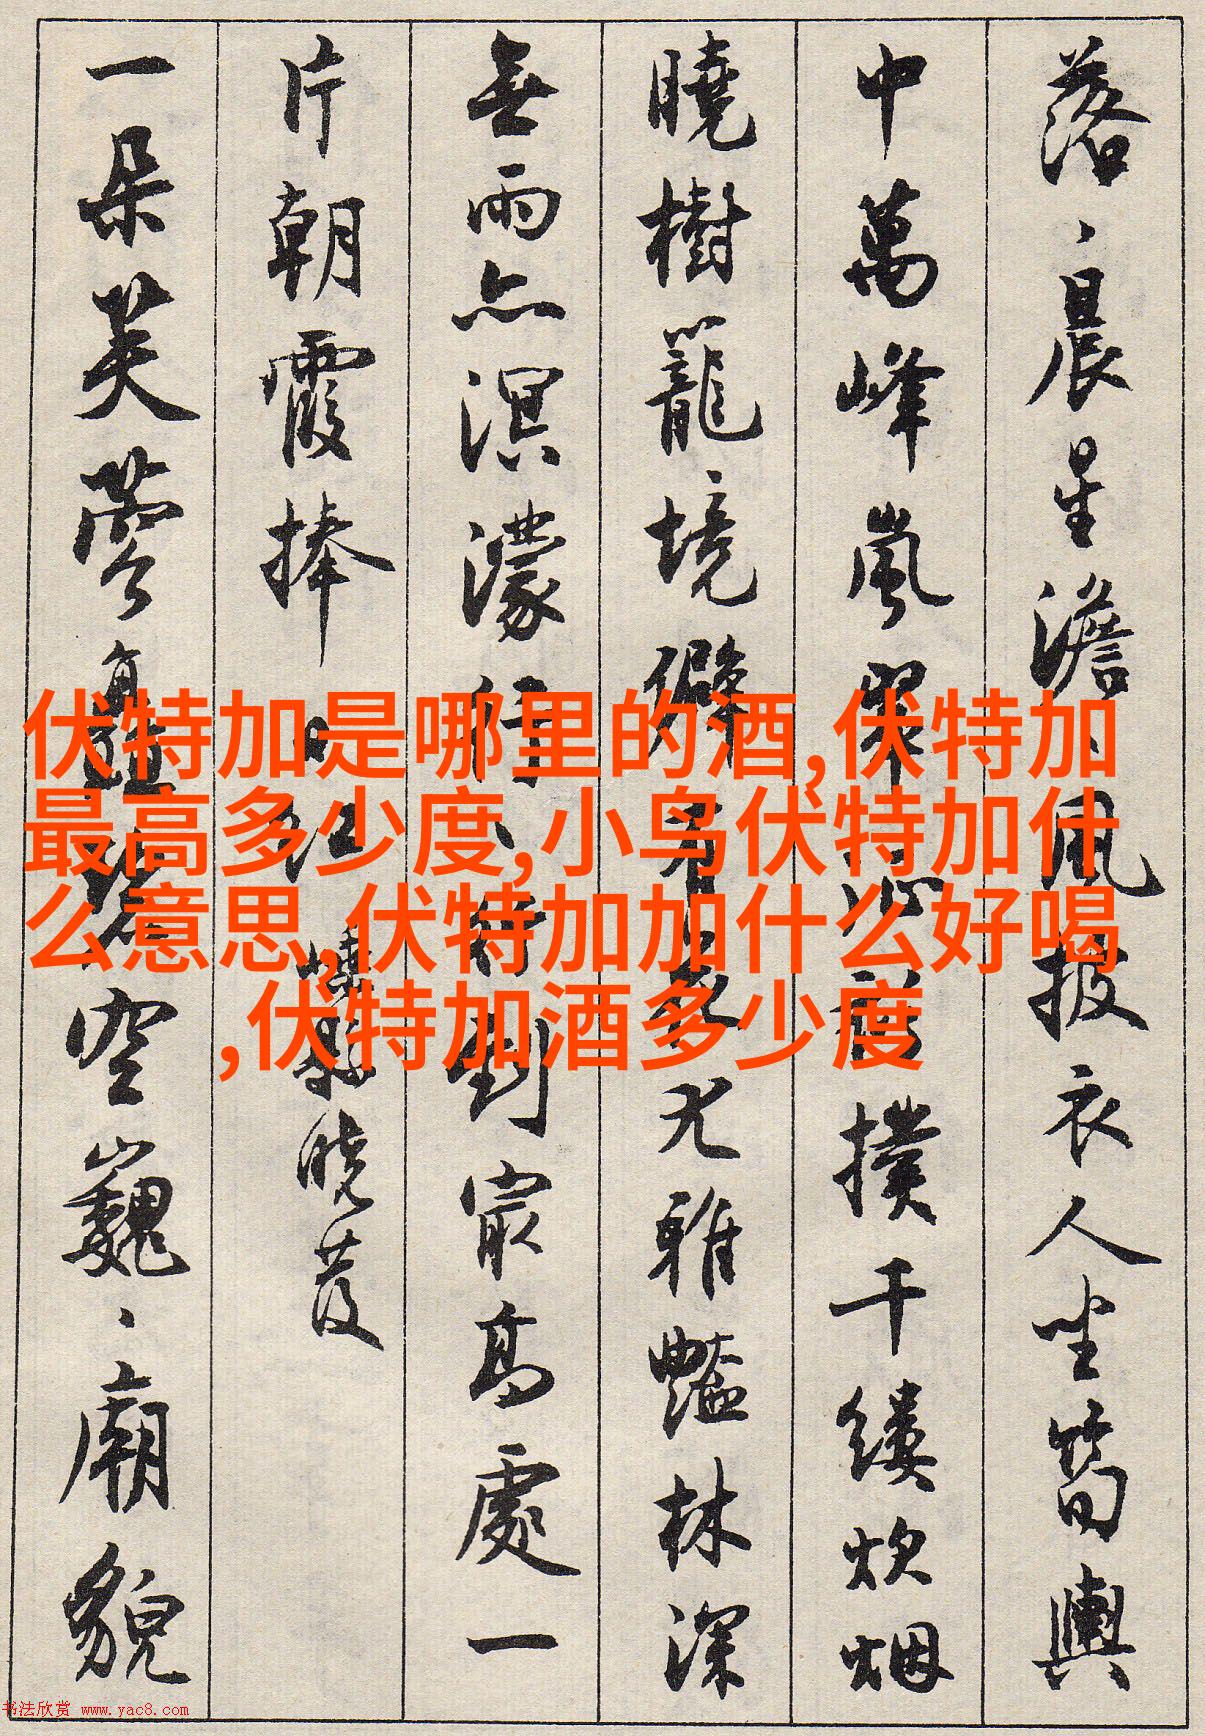 落、晨星澹、風披衣人坐筍輿
中萬峰嵐翠撲千縷炊烟
曉樹籠、境僻尤雅豔林深
無雨亦溟濛行、到最高處一
片朝霞捧口紅 曉發
一朵芙蓉矗碧空巍、廟貌
伏特加是哪里的酒,伏特加
最高多少度,小鸟伏特加什
么意思,伏特加加什么好喝
,伏特加酒多少度
书法欣赏 www.yac8.com